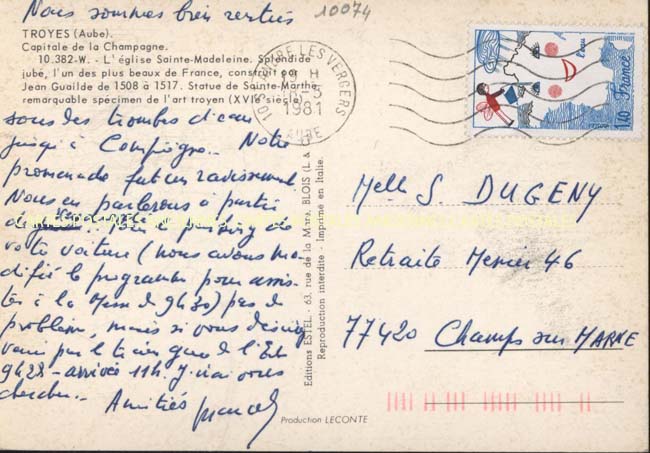 Nous sommes bien rentrés
TROYES (Aube).
Capitale de la Champagne.
10.382-W. - L'église Sainte-Madeleine. Splendide
jubé, l'un des plus beaux de France, construit par
Jean Guailde de 1508 à 1517. Statue de Sainte-Marthe,
remarquable spécimen de l'art troyen (XVIe siècle).
sous des trombes d'eau
jusqu'à Compiègne. Notre
promenade fut un ravissement
Nous en parlerons à partir
de parking de
votre voiture (nous avons mo
difié le programme pour assis
ter à la Messe de 9h30) pas de
problème, mais si vous désirez
venir par le train gare de l'Est
9h28 - arrivée 11h. J'irai vous
chercher. Amitiés
10074
LES VERGERS
1981
AUBE
l'eau
France
1,40
Melle S. DUGENY
Retraite Menier 46
77420 Champs sur MARNE
Editions ESTEL - 63, rue de la Mare, BLOIS (L. &
Reproduction interdite - Imprimé en Italie.
Production LECONTE